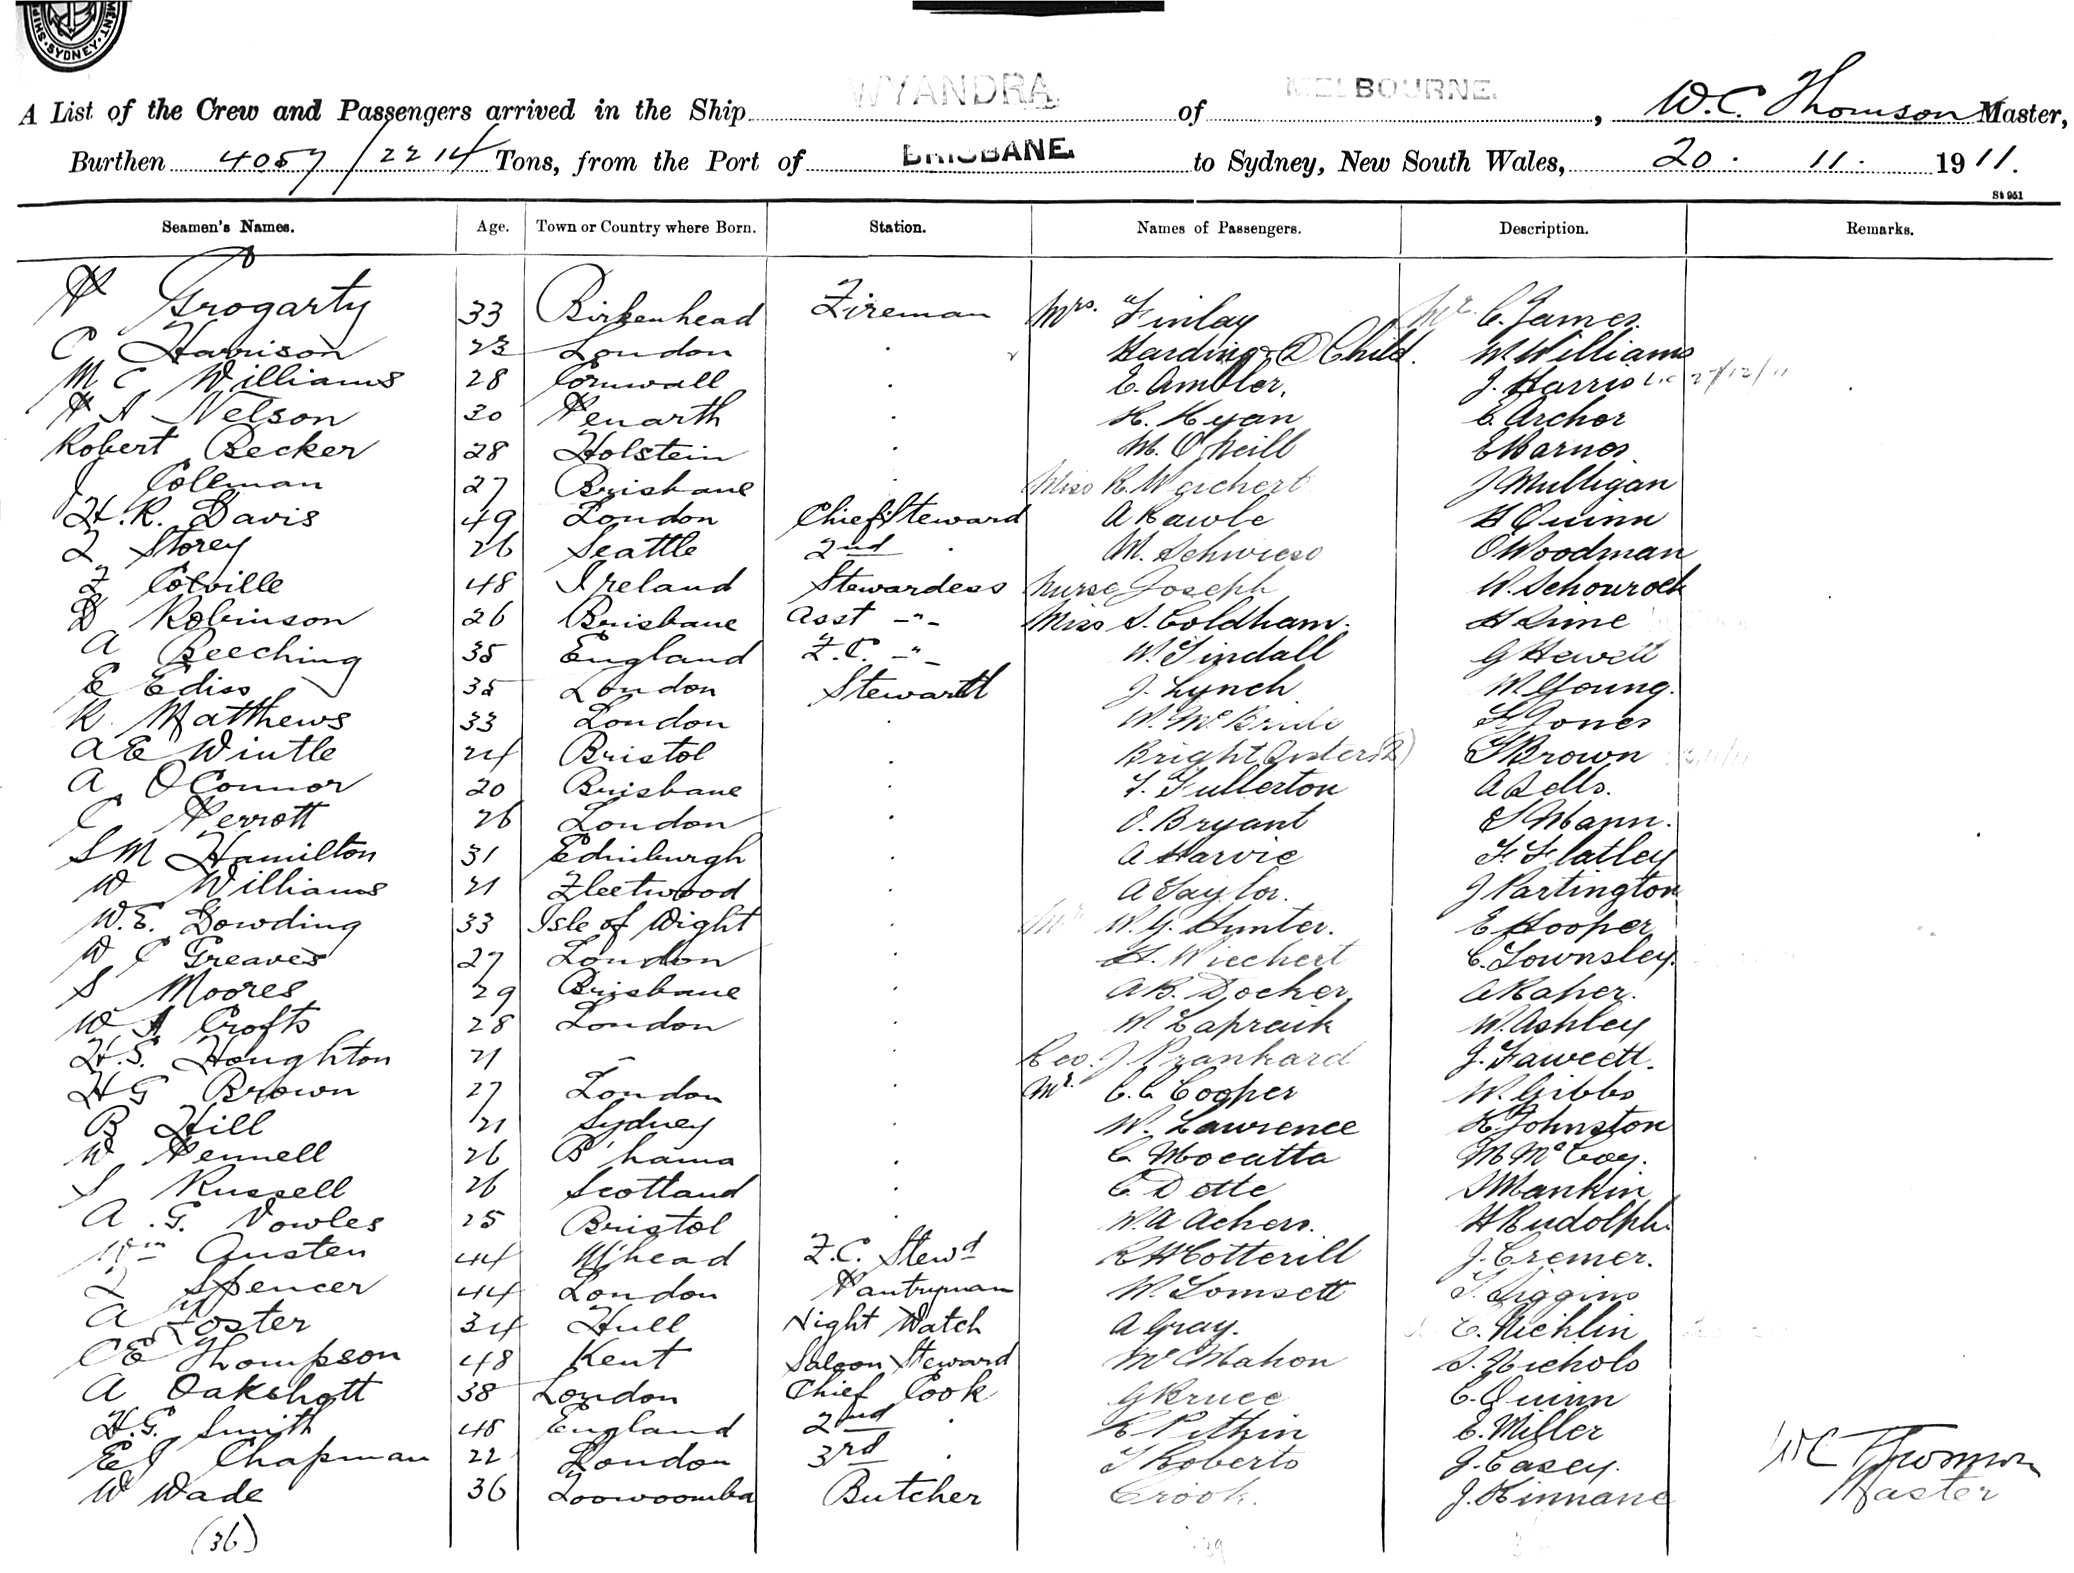 SYDNEY
A List of the Crew and Passengers arrived in the Ship WYANDRA of MELBOURNE. , W.C. Thomson Master,
Burthen 4057/2214 Tons, from the Port of BRISBANE. to Sydney, New South Wales, 20 . 11 . 1911.
St 951
Seamen's Names. Age. Town or Country where Born. Station. Names of Passengers. Description. Remarks.
P Grogarty 33 Birkenhead Fireman Mrs. Finlay Mr. C. James
C Harrison 23 London . Harding & Child. W. Williams
M C Williams 28 Cornwall . E. Ambler. J. Harris 27/12/11
P A Nelson 30 Penarth . H. Ryan C Archer
Robert Becker 28 Holstein . M. O'Neill E Barnes
J Coleman 27 Brisbane . Miss R. Weichert J Mulligan
H.R. Davis 49 London Chief Steward A Rawle H Quinn
F Storey 26 Seattle 2nd . M. Schwieso O Woodman
F Colville 48 Ireland Stewardess Nurse Joseph W. Schourock
D Robinson 26 Brisbane Asst -"- Miss S. Coldham. H Sime
A Beeching 35 England F.C. -"- W. Tindall G Hewell
E Ediss 35 London Steward J. Lynch W Young.
R. Matthews 33 London . W. McBride F Jones
A E Wintle 24 Bristol . Bright Sisters (2) T Brown
A O'Connor 20 Brisbane . F. Fullerton A Sells.
C Perrott 26 London . O. Bryant S Mann.
S M Hamilton 31 Edinburgh . A Harvie F. Flatley
W Williams 21 Fleetwood . A Taylor. J Partington
W.E. Dowding 33 Isle of Wight . Mr W. G. Hunter. E Hooper
W C Greaves 27 London . H. Wiechert C. Townsley.
S Moores 29 Brisbane . A B. Docker A Raper.
W A Crofts 28 London . W Lapraik W. Ashley
H.S. Houghton 21 - . Rev. J Prankard J. Fawcett.
H G Brown 27 London . Mr. C. C Cooper W. Gibbs
B Hill 21 Sydney . W. Lawrence R Johnston
W Pennell 26 B'hama . C. Mocatta M McCoy.
S Russell 26 Scotland . C Dette S Mankin
A .G. Vowles 25 Bristol . W. A Achers. H Rudolph.
Wm Austen 44 M'head F.C. Stewd R H Cotterill J. Cremer.
F Spencer 44 London Pantryman W. Tomsett T. Siggins
A Foster 34 Hull Night Watch A Gray. C. Nicklin
C E Thompson 48 Kent Saloon Steward McMahon S. Nichols
A Oakshott 38 London Chief Cook G Bruce C. Quinn
H.G. Smith 48 England 2nd . R Pitkin E. Miller
E J Chapman 22 London 3rd . T Roberts J. Casey.
W Wade 36 Toowoomba Butcher Crook. J. Kinnane
W C Thomson
Master
(36) 39